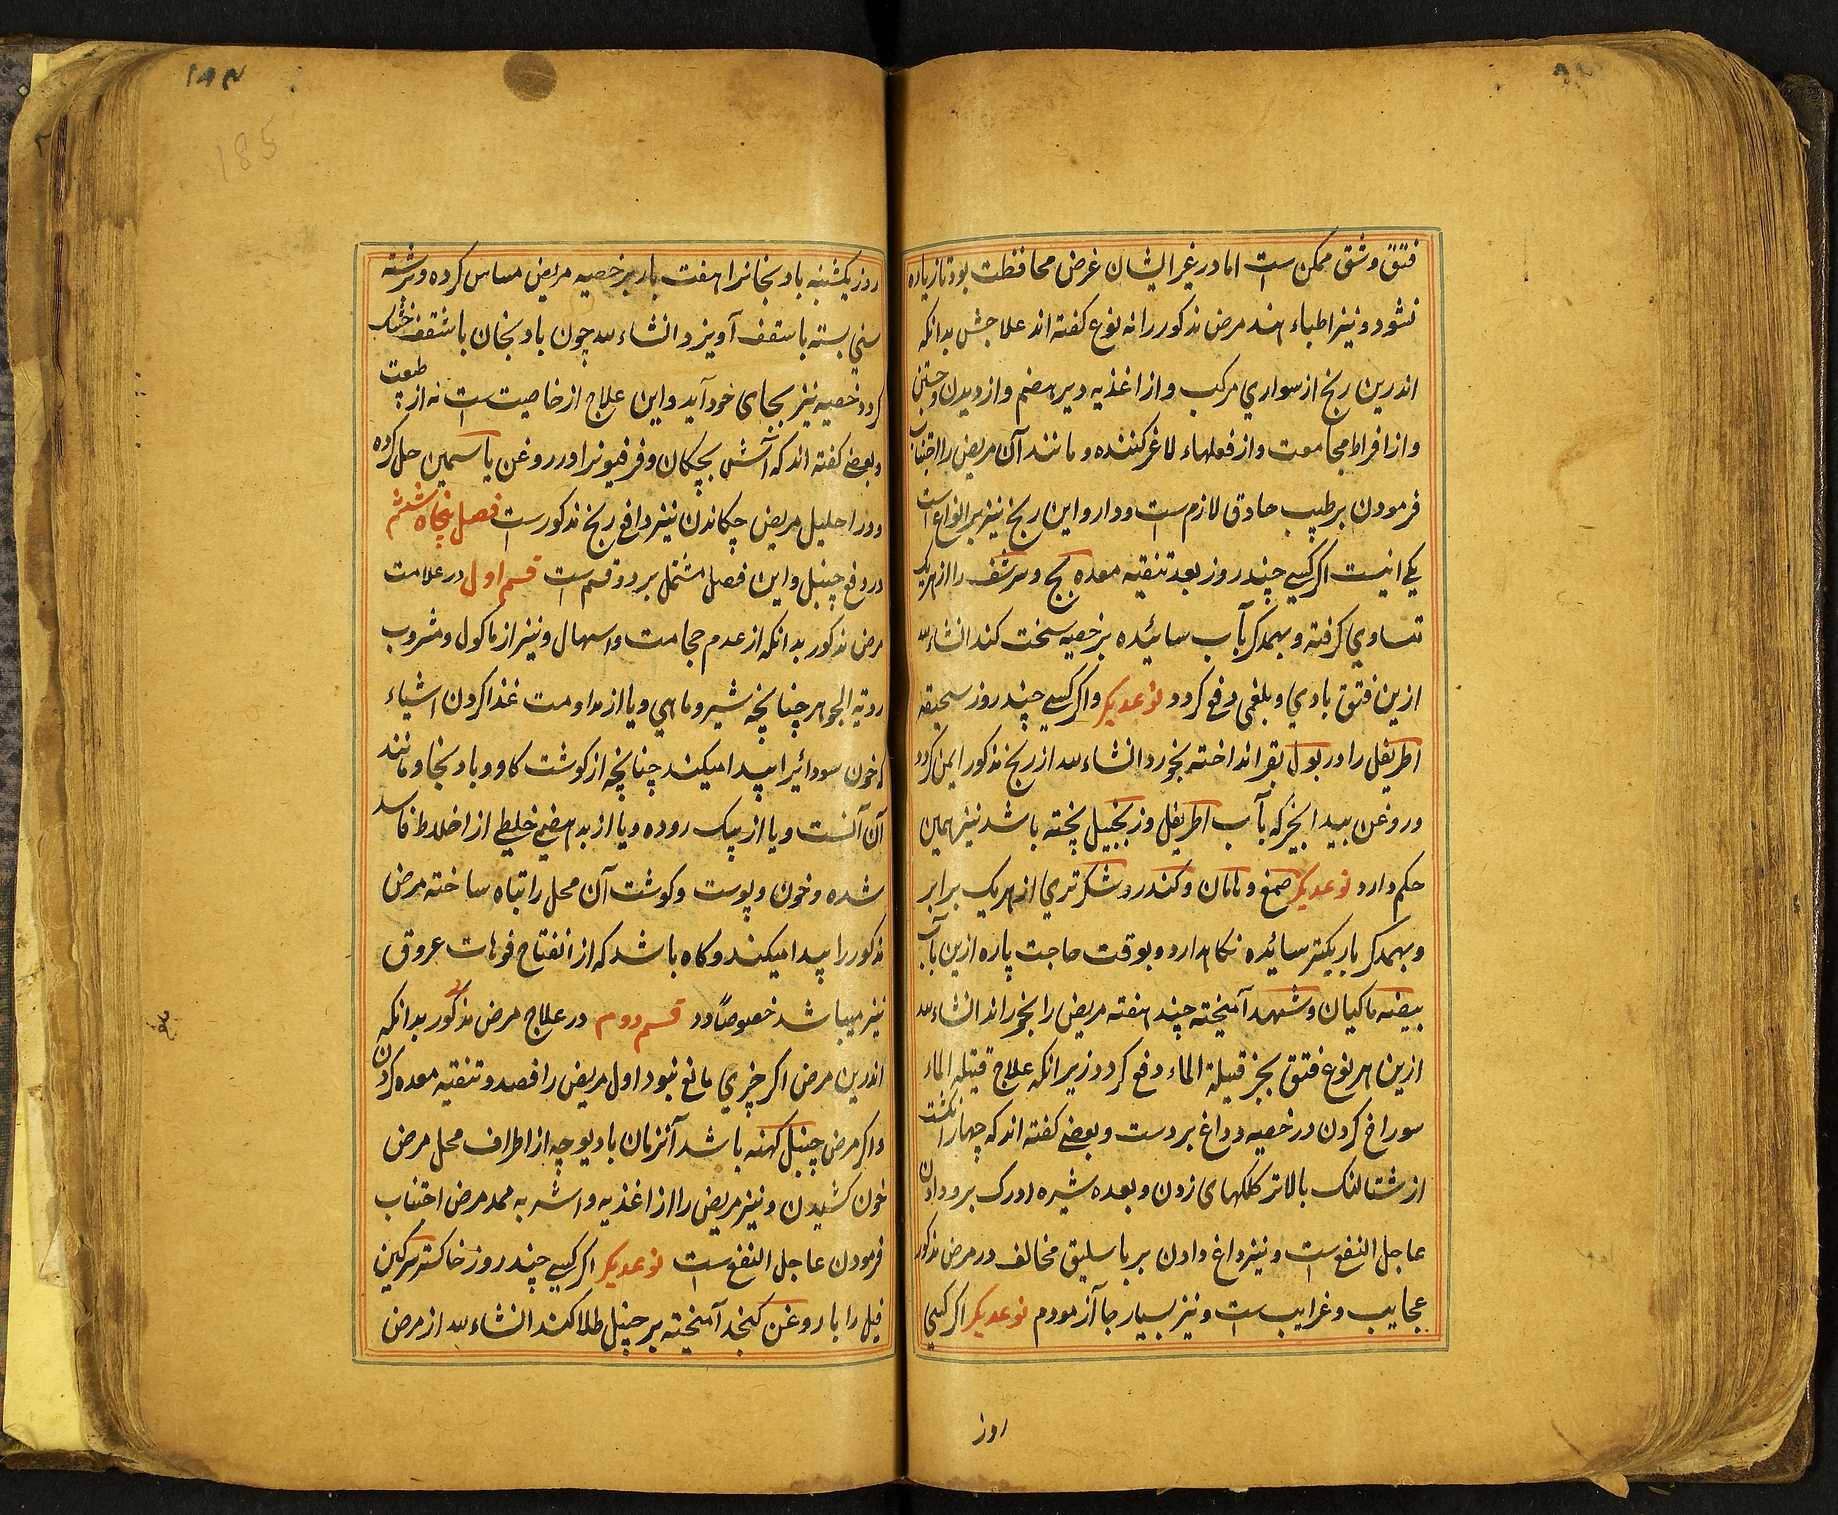 فتق و شق ممکن است اما در غیر ایشان غرض محافظت بود تا زیاده
نشود و نیز اطباء هند مرض مذکور را نه نوع کفته اند علاجش بدانکه
اندرین رنج از سواری مرکب و از اغذیه دیر هضم و از دویدن و جستن
و از افراط مجامعت و از فعلهاء لاغر کننده و مانند آن مریض را اجتناب
فرمودن بر طبیب حاذق لازم است و دارو این رنج نیز بر انواع است
یکی اینست اکر کسی چند روز بعد تنقیه معده بج و سرشف را از هریک
تساوی کرفته و بهمدکر بآب سائیده بر خصیه سخت کند انشاءلله
ازین فتق بادی و بلغمی دفع کردد نوعدیکر و اکر کسی چند روز سحیقه
اطریفل را در بول بقر انداخته بخورد انشاءلله از رنج مذکور ایمن کردد
و روغن بید انجیر که بآب اطریفل و زنجبیل پخته باشد نیز همین
حکم دارد نوعدیکر صمغ و نامان و کندر و شکرتری از هریک برابر
و بهمدکر باریکتر سائیده نکاه دارد و بوقت حاجت پاره ازین بآب
بیضه ماکیان و شهد آمیخته چند هفته مریض را بخوراند انشاءلله
ازین هر نوع فتق بجز قیلة الماء دفع کردد زیرانکه علاج قیلة الماء
سوراخ کردن در خصیه و داغ بر دست و بعضی کفته اند که چهار انکشت
از شتالنک بالاتر کلکهای زدن و بعده شیره ادرک برو دادن
عاجل النفع است و نیز داغ دادن بر باسلیق مخالف در مرض مذکور
عجایب و غرایب است و نیز بسیار جا آزمودم نوعدیکر اکر کسی
روز
۱۸۴
185
روز یکشنبه بادنجانرا هفت بار بر خصیه مریض مساس کرده و برشته
بسته با سقف آویزد انشاءلله چون بادنجان با سقف خشک
کردد خصیه نیز بجای خود آید و این علاج از خاصیت است نه از طبیعت
و بعضی کفته اند که آش بچکان و فرفیونرا در روغن یاسمین حل کرده
و در احلیل مریض چکاندن نیز دافع رنج مذکور است فصل پنجاه ششم
در دفع چنبل و این فصل مشتمل بر دو قسم است قسم اول در علامت
مرض مذکور بدانکه از عدم حجامت و اسهال و نیز از ماکول و مشروب
ردیة الجوهر چنانچه شیر و ماهی و یا از مداومت غذا کردن اشیاء
که خون سودائیرا پیدا میکند چنانچه از کوشت کاو و بادنجان و مانند
آن آنست و یا از پیک روده و یا از بد هضمی خلیطی از اخلاط فاسد
شده و خون و پوست و کوشت آن محل را تباه ساخته مرض
مذکور را پیدا میکند و کاه باشد که از انفتاح فوهات عروق
نیز میباشد خصوصاً قسم دوم در علاج مرض مذکور بدانکه
اندرین مرض اکر چیزی مانع نبود اول مریض را فصد و تنقیه معده کردن
و اکر مرض چنبل کهنه باشد آنزمان با دیوچه از اطراف محل مرض
خون کشیدن و نیز مریض را از اغذیه و اشربه ممد مرض اجتناب
فرمودن عاجل النفع است نوعدیکر اکر کسی چند روز خاکستر سرکین
فیل را با روغن کنجد آمیخته بر چنبل طلا کند انشاءلله از مرض